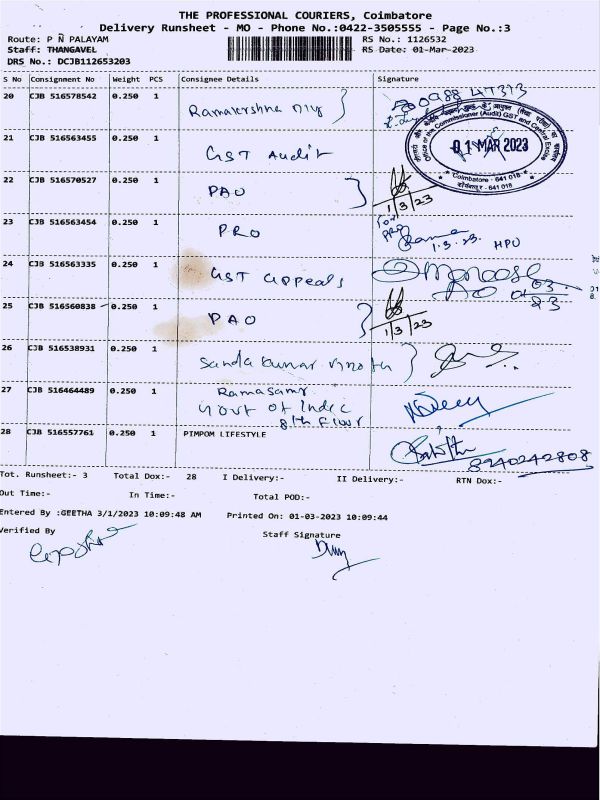 THE PROFESSIONAL COURIERS, Coimbatore
Delivery Runsheet - MO - Phone No.:0422-3505555 - Page No.:3
Route: P N PALAYAM RS No.: 1126532
Staff: THANGAVEL RS Date: 01-Mar-2023
DRS No.: DCJB112653203
S No Consignment No Weight PCS Consignee Details Signature
20 CJB 516578542 0.250 1
21 CJB 516563455 0.250 1 GST Audit
Office of the Commissioner (Audit) GST and Central Excise
01 MAR 2023
Coimbatore - 641 018
22 CJB 516570527 0.250 1 PAO 1/3/23
23 CJB 516563454 0.250 1 PRO 1.3.23.
24 CJB 516563335 0.250 1 GST Appeals
25 CJB 516560838 0.250 1 PAO 1/3/23
26 CJB 516538931 0.250 1
27 CJB 516464489 0.250 1 Ramasamy
Govt of Indic
8th Floor
28 CJB 516557761 0.250 1 PIMPOM LIFESTYLE
8940242808
Tot. Runsheet:- 3 Total Dox:- 28 I Delivery:- II Delivery:- RTN Dox:-
Out Time:- In Time:- Total POD:-
Entered By :GEETHA 3/1/2023 10:09:48 AM Printed On: 01-03-2023 10:09:44
Verified By Staff Signature